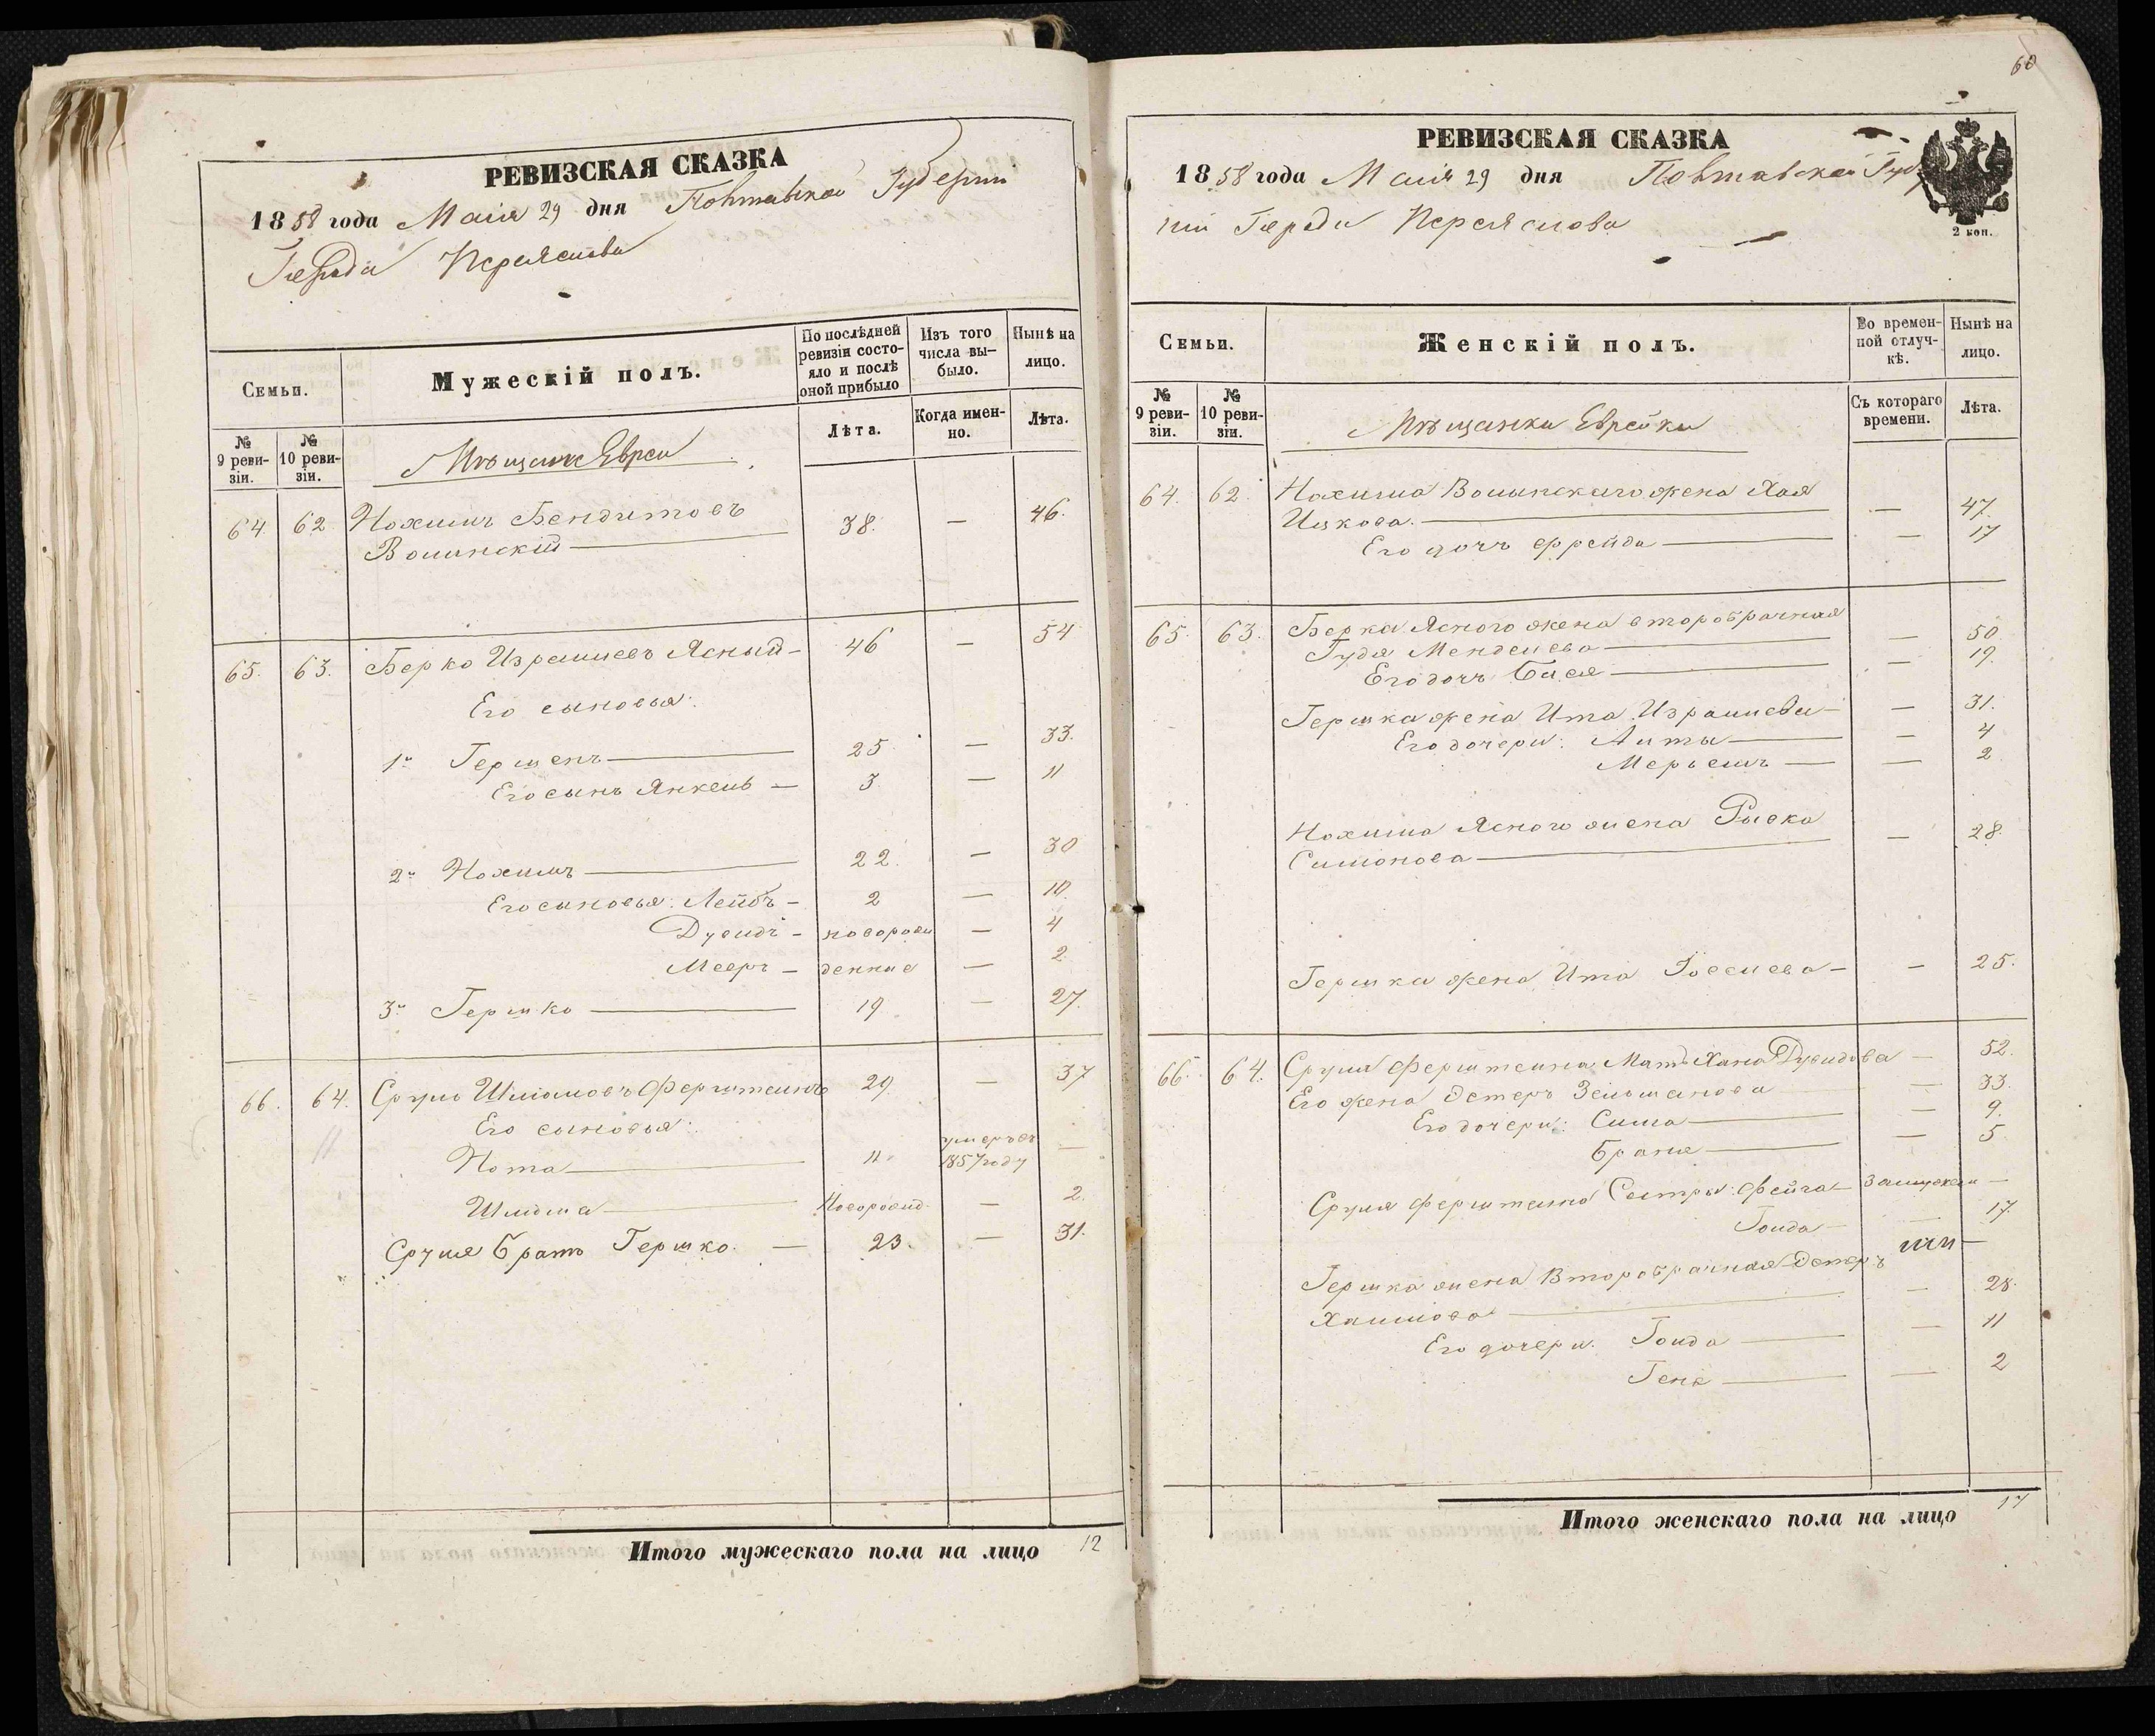 РЕВИЗСКАЯ СКАЗКА
1858 года Маія 29 дня Полтавской Губерніи
Города Переяслова
Семьи.
Мужескій полъ.
По послѣдней ревизіи состояло и послѣ оной прибыло
Изъ того числа выбыло.
Нынѣ на лицо.
№ 9 ревизіи.
№ 10 ревизіи.
Мѣщане Евреи
Лѣта.
Когда именно.
Лѣта.
64. 62 Нохимъ Бендитовъ 38. — 46.
Волинскій
65. 63. Берко Израилевъ Ясный 46 — 54
Его сыновья:
1й Гершенъ 25 — 33.
Его сынъ Янкель 3 — 11
2й Нохимъ 22. — 30
Его сыновья: Лейбъ 2 — 10.
Дувидъ новорож — 4
Мееръ денные — 2
3й Гершко 19 — 27.
66. 64. Сруль Шліомовъ Ферштейнъ 29. — 37
Его сыновья:
Нота 11. умеръ въ 1857 году —
Шліома Новорожд. — 2.
Сруля братъ Гершко. 23. — 31.
Итого мужескаго пола на лицо 12
68
РЕВИЗСКАЯ СКАЗКА
1858 года Маія 29 дня Полтавской Губер
ніи Города Переяслова
2 коп.
Семьи.
Женскій полъ.
Во временной отлучкѣ.
Нынѣ на лицо.
№ 9 ревизіи.
№ 10 ревизіи.
Мѣщанки Еврейки
Съ котораго времени.
Лѣта.
64. 62. Нохима Волинскаго жена Хая
Ицкова. — 47.
Его дочь Фрейда — 17
65. 63. Берка Ясного жена второбрачная
Гудя Менделева — 50.
Его дочь Бася — 19.
Гершка жена Ита Израилева — 31.
Его дочери: — 4
Мерьемъ — 2
Нохима Ясного жена Рывка
Симонова — 28.
Гершка жена Ита — 25.
66. 64. Сруля Ферштейна Мать Хана Дувидова — 52.
Его жена Эстеръ Зельманова — 33.
Его дочери: Сима — 9.
Браня — 5
Сруля Ферштейна Сестры: Фейга замужемъ —
Голда — 17
Гершка жена второбрачная Эстеръ
Хаимова — 28.
Его дочери. Голда — 11
Геня — 2
Итого женскаго пола на лицо 17